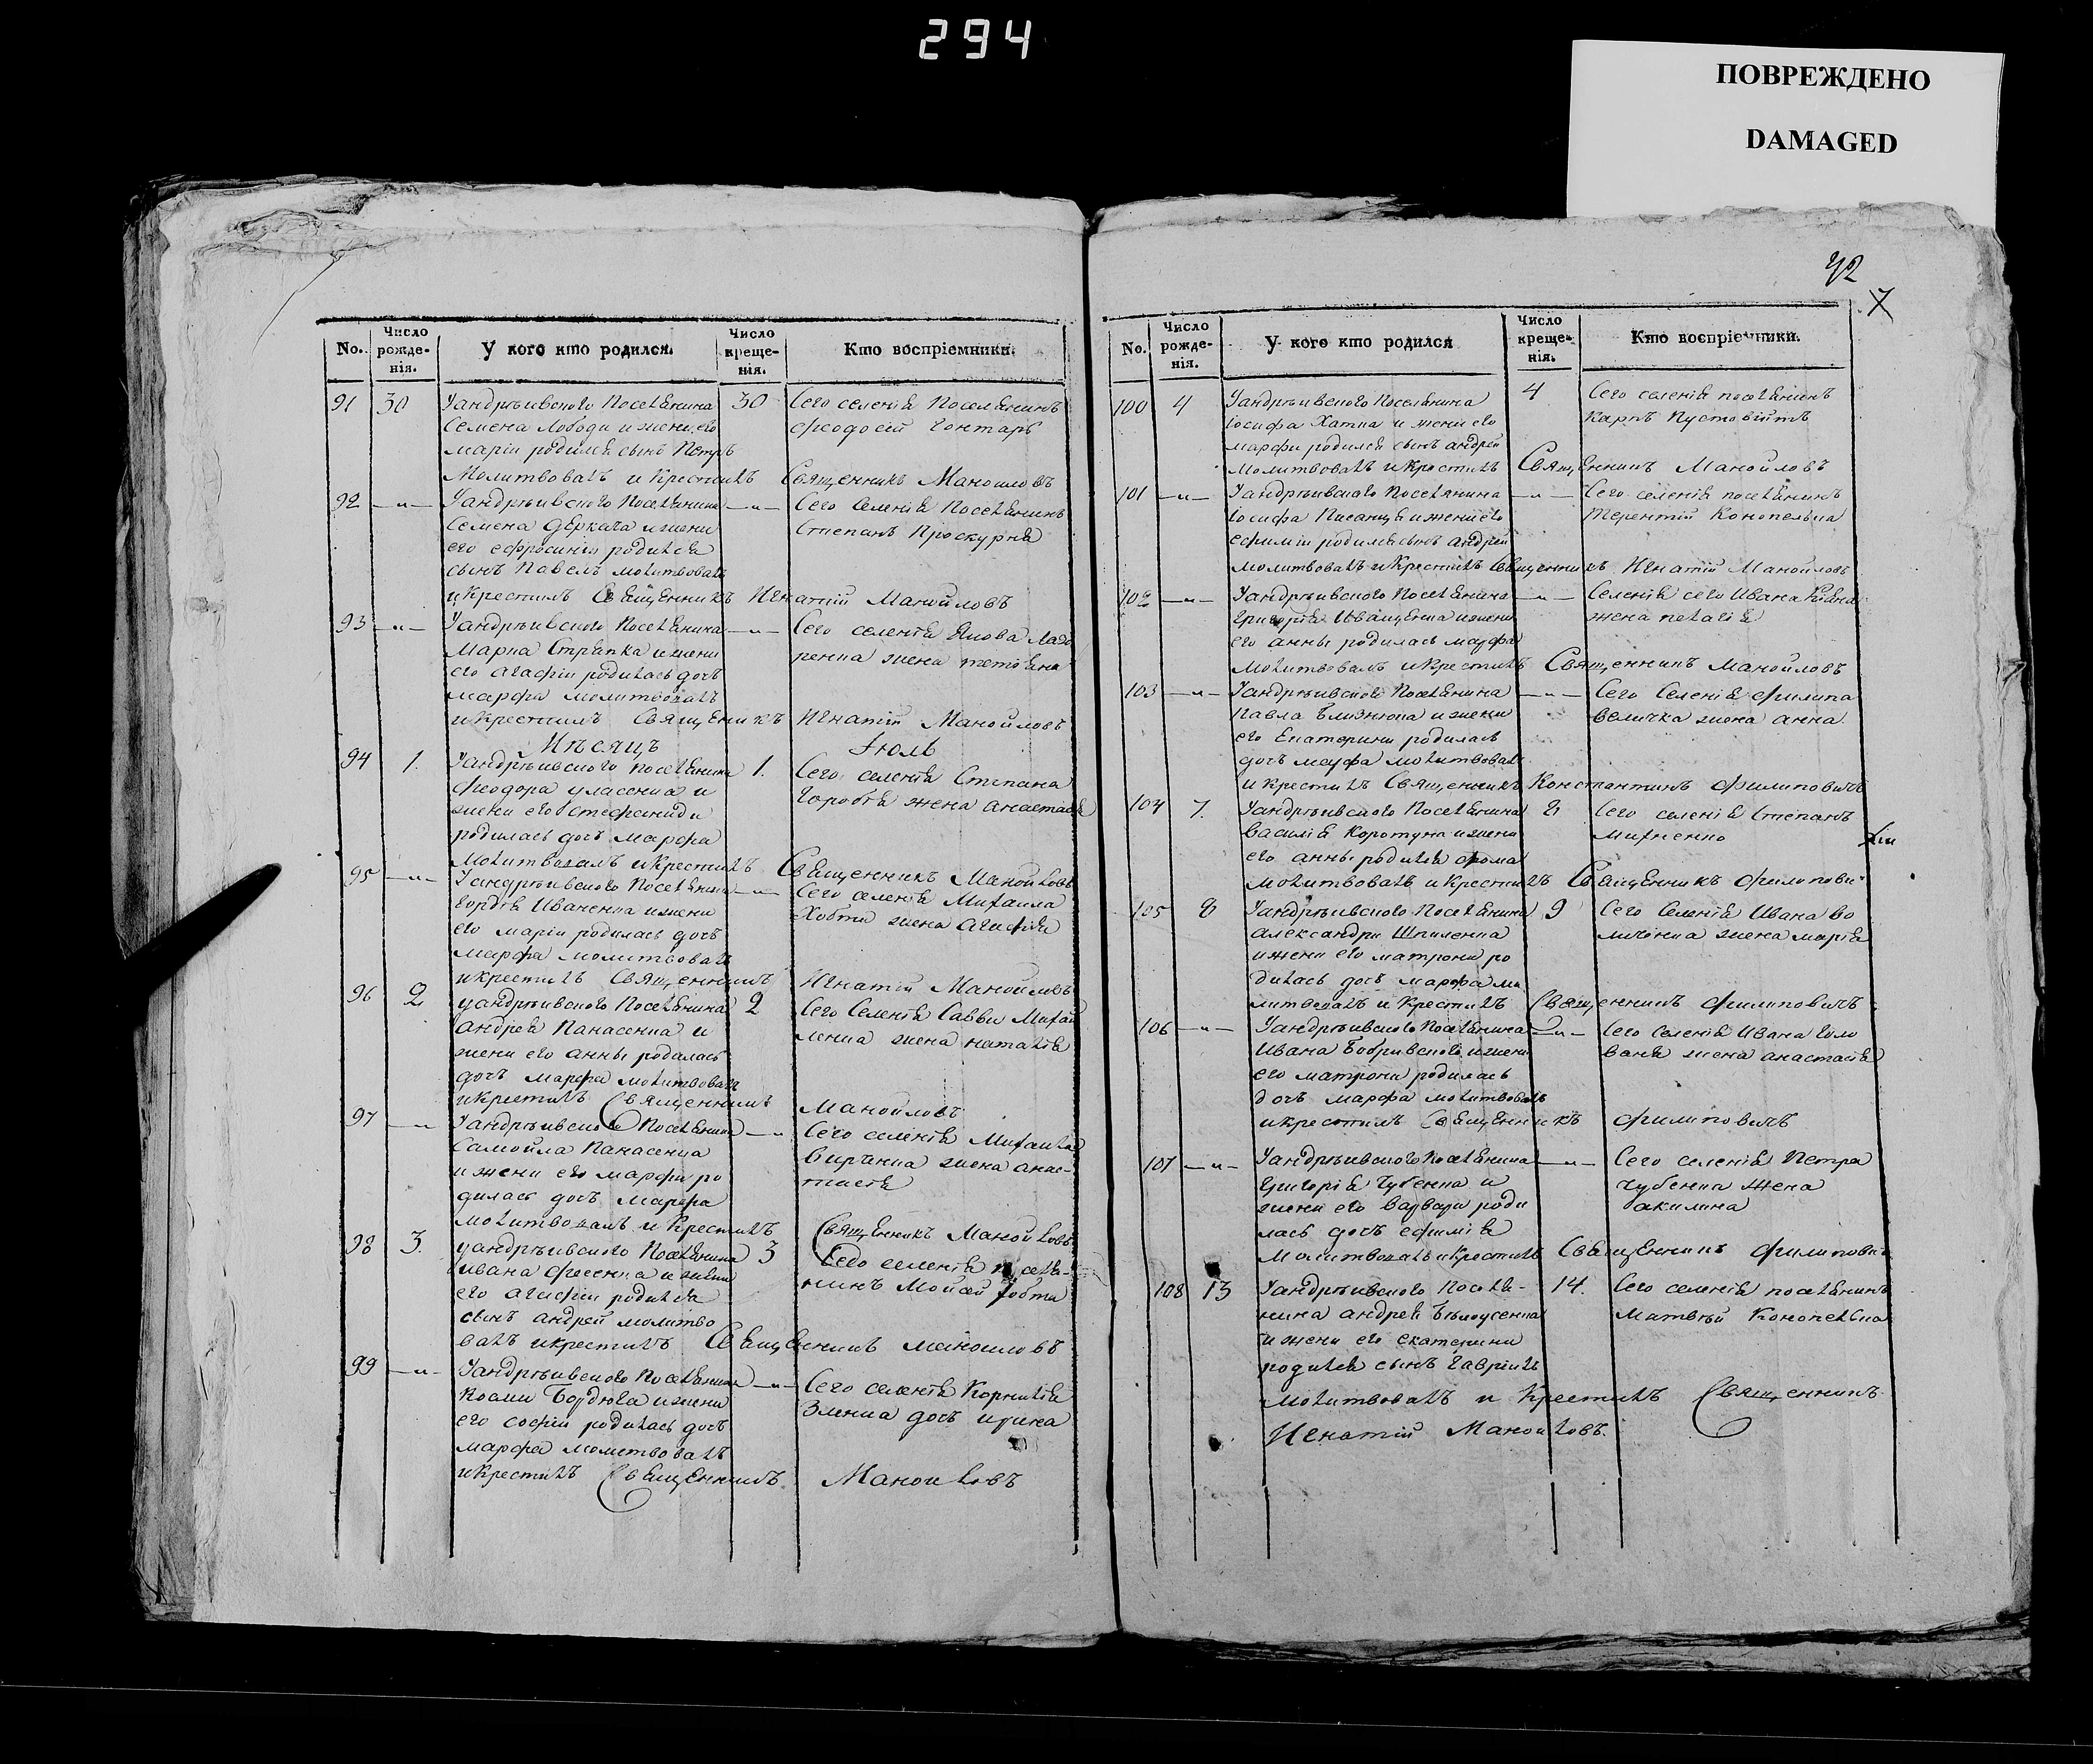 294
ПОВРЕЖДЕНО
DAMAGED
No. Число рожде-нія. У кого кто родился. Число креще-нія. Кто воспріемники.
91 30 Уандрѣивского поселянина 30 Сего селенія поселянинъ
Семена Лободи и жени его феодосій Гонтарь
маріи родился сынъ Петръ
молитвовалъ и крестилъ Священникъ Манойловъ
92 —„— Уандрѣивского поселянина —„— Сего селенія поселянинъ
Семена Деркача и жени Степанъ Проскурня
его ефросиніи родился
сынъ Павелъ молитвовалъ
и крестилъ Священникъ Игнатій Манойловъ
93 —„— Уандрѣивского поселянина —„— Сего селенія Якова Лазо
Марка Стрипка и жени ренка жена тетояна
его агафіи родилась дочь
марфа молитвовалъ
и крестилъ Священикъ Игнатій Манойловъ
Мѣсяцъ Іюль
94 1. Уандрѣивского поселянина 1. Сего селенія Степана
феодора уласенка и Горобія жена анастасія
жени его Стефаниди
родилась дочь марфа
молитвовалъ и крестилъ Священникъ Манойловъ
95 —„— Уандрѣивского поселянина —„— Сего селенія Михаила
Гордія Иваненка и жени Хобти жена агафія
его маріи родилась дочь
марфа молитвовалъ
и крестилъ Священникъ Игнатій Манойловъ
96 2 уандрѣивского поселянина 2 Сего селенія Савви Михай
андрея Панасенка и ленка жена наталія
жени его анны родилась
дочь марфа молитвовалъ
и крестилъ Священникъ Манойловъ
97 —„ Уандрѣивского поселянина —„ Сего селенія Михаила
Самойла Панасенка жена анас-
и жени его марфи ро тасія
дилась дочь марфа
молитвовалъ и крестилъ Священикъ Манойловъ
98 3. уандрѣивского поселянина 3 Сего селенія поселя-
ивана фесенка и жени нинъ Мойсей Хобта
его агафіи родился
сынъ андрей молитво
валъ и крестилъ Священникъ маноиловъ
99 —„— Уандрѣивского поселянина —„— Сего селенія Корнилія
Косми Бордюга и жени Зленка дочь ирина
его софіи родилась дочь
марфа молитвовалъ
и крестилъ Священникъ Маноиловъ
42
7
No. Число рожде-нія. У кого кто родился Число креще-нія. Кто воспріемники.
100 4 Уандрѣивского поселянина 4 Сего селенія поселянинъ
Іосифа Хатка и жени его Карпъ Пустовійтъ
марфи родился сынъ андрей
молитвовалъ и крестилъ Священникъ Манойловъ
101 —„— Уандрѣивского поселянина —„— Сего селенія поселянинъ
Іосифа Писанца и жени его Терентій Конопелька
ефиміи родился сынъ андрей
молитвовалъ и крестилъ Священникъ Игнатій Манойловъ
102 —„— Уандрѣивского поселянина —„— Селенія сего Ивана
Григорія Иващенка и жени жена пелагія
его анны родилась марфа
молитвовалъ и крестилъ Священникъ Манойловъ
103 —„— Уандрѣивского поселянина —„— Сего селенія филипа
Павла Близнюка и жени величка жена анна.
его Екатерини родилась
дочь марфа молитвовалъ
и крестилъ Священникъ Константинъ филиповичъ
104 7. Уандрѣивского поселянина 8 Сего селенія Степанъ
василія коротуна и жени михненко
его анны родился фома
молитвовалъ и крестилъ Священникъ филипови-
105 8 Уандрѣивского поселянина 9 Сего селенія Ивана во
александри Шпиленка жена марія
и жени его матрони ро
дилась дочь марфа мо
литвовалъ и крестилъ Священникъ филиповичъ
106 —„— Уандрѣивского поселянина —„— Сего селенія Ивана Голо
Ивана Бобривского и жени ваня жена анастасія
его матрони родилась
дочь марфа молитвовалъ
и крестилъ Священникъ филиповичъ
107 —„— Уандрѣивского поселянина —„— Сего селенія Петра
Григорія Чубенка и чубенка жена
жени его варвари роди акилина
лась дочь ефимія
молитвовалъ и крестилъ Священникъ филипови
108 13 Уандрѣивского поселя- 14. Сего селенія поселянинъ
нина андрея Бѣлоусенка Матвѣй Конопелька
и жени его екатерини
родился сынъ гавріилъ
молитвовалъ и крестилъ Священникъ
Игнатій Маноиловъ.